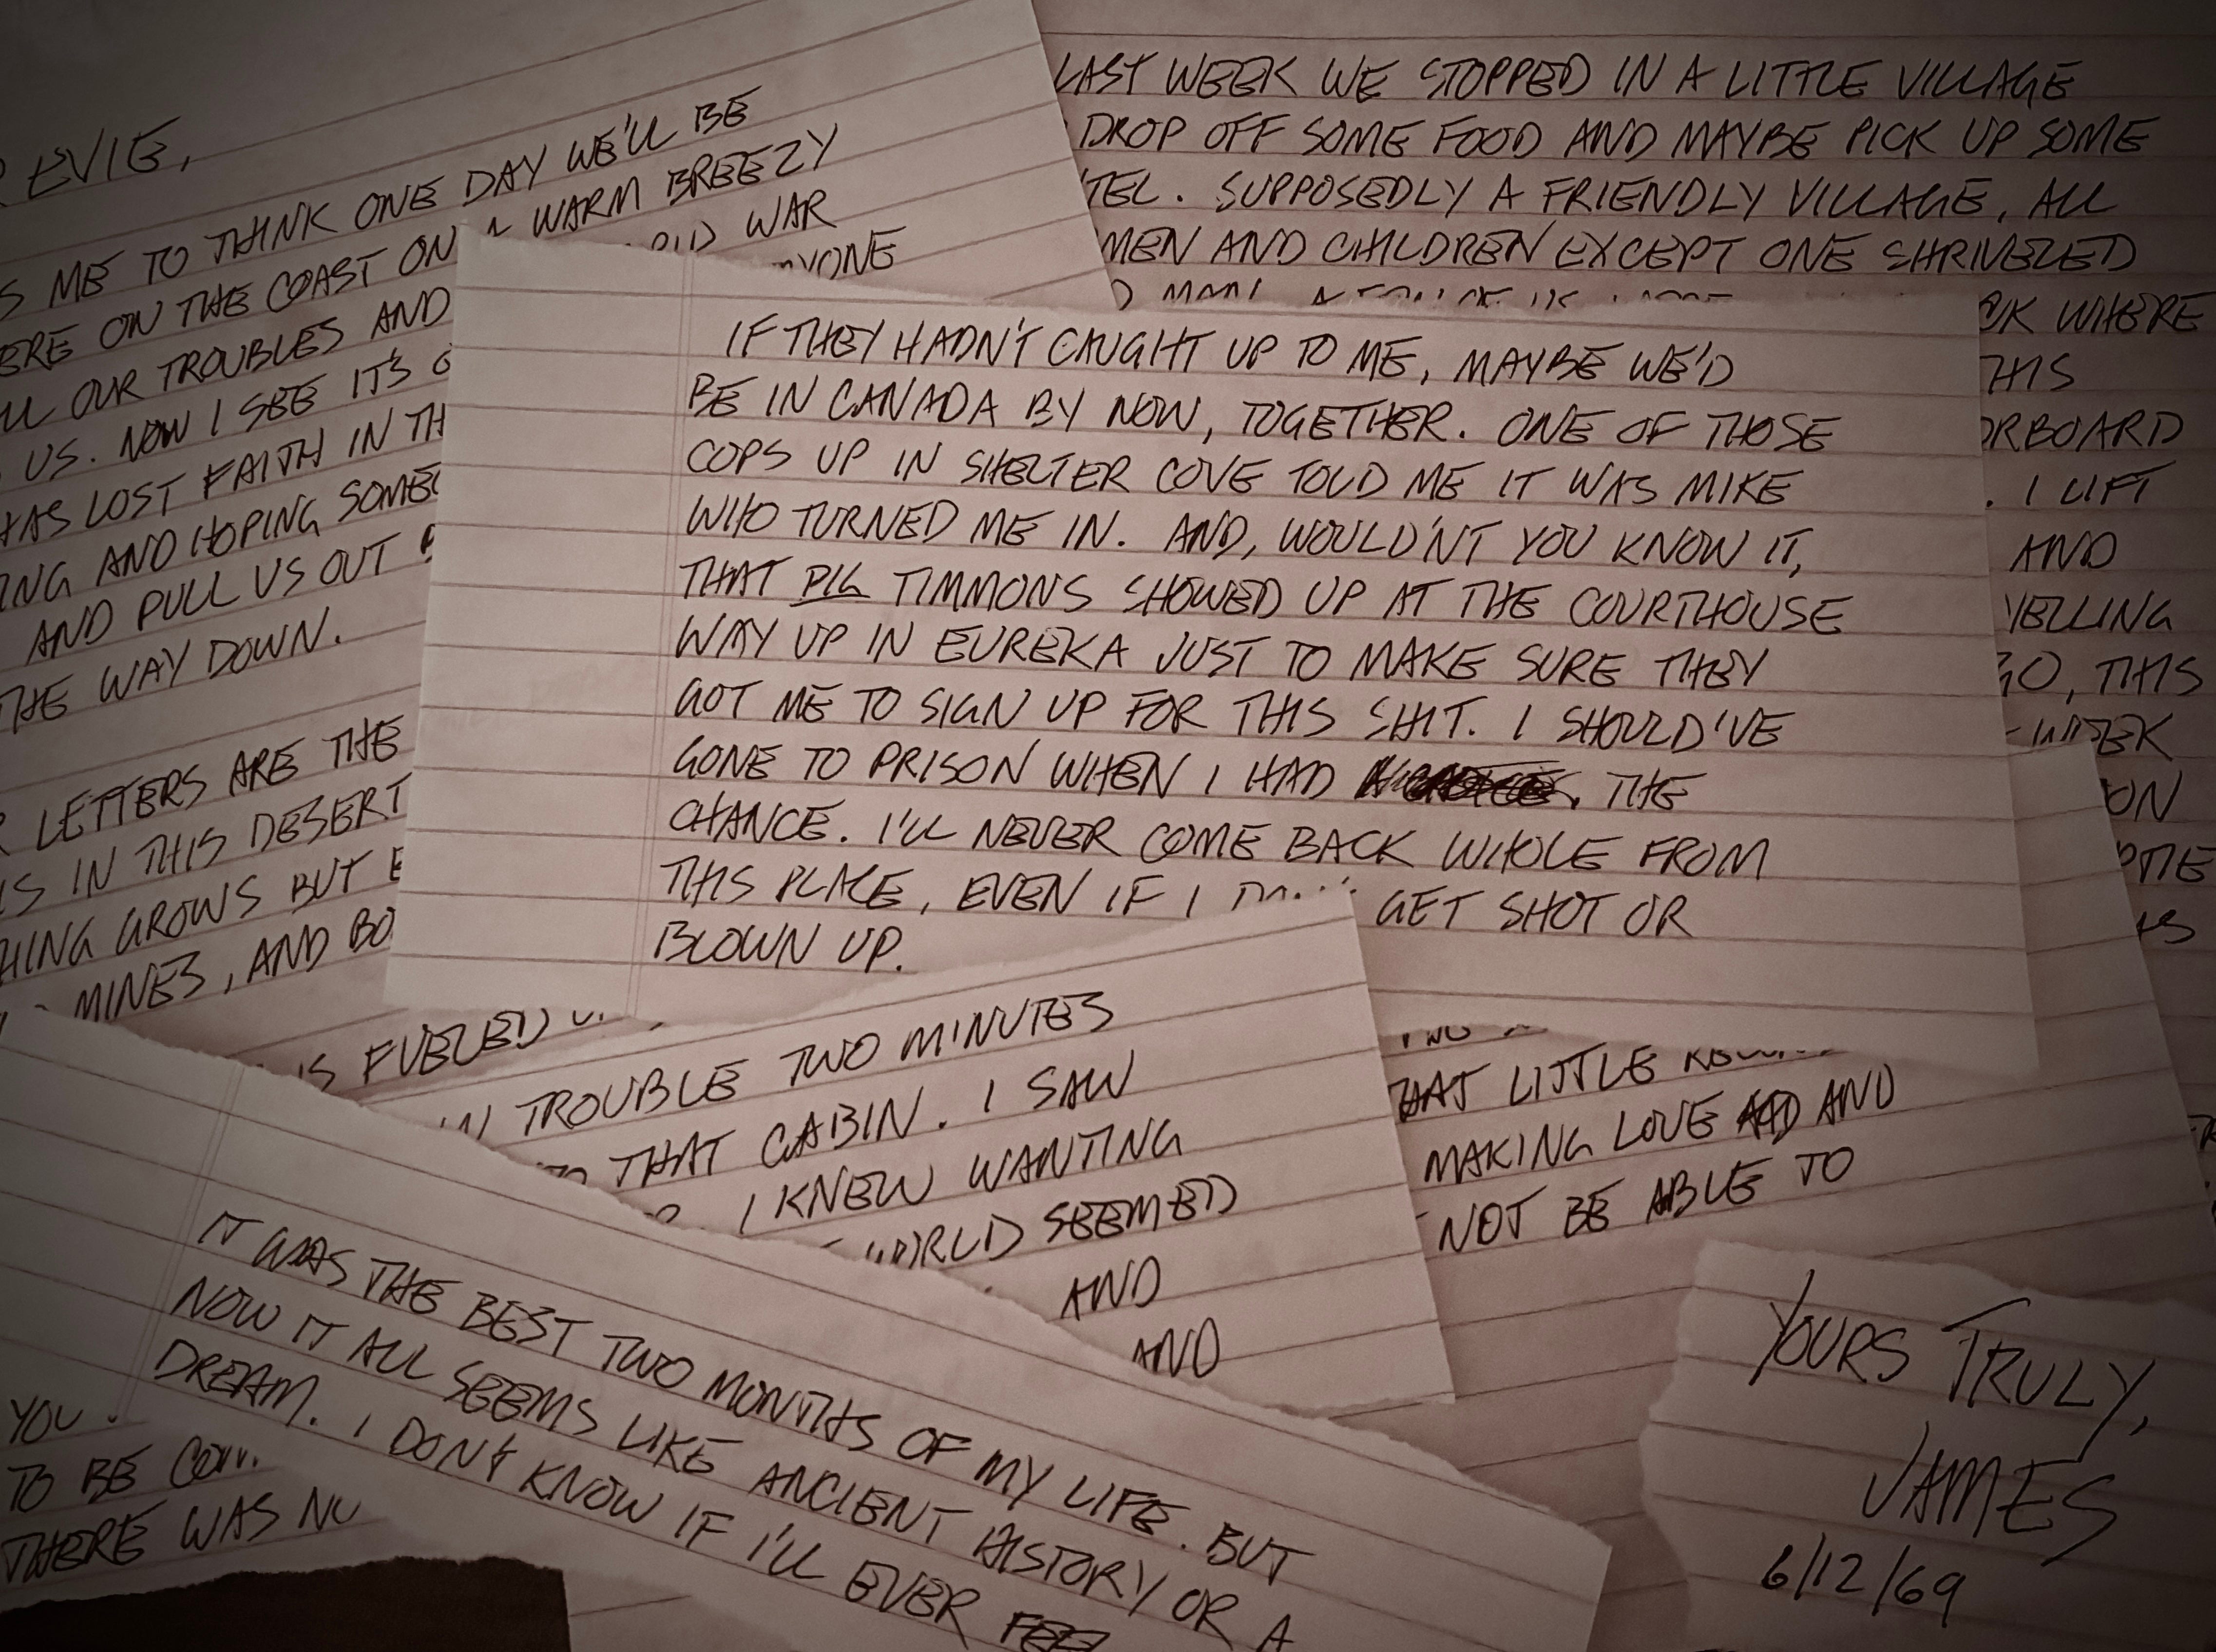 EVIE,
ME TO THINK ONE DAY WE'LL BE
ON THE COAST ON A WARM BREEZY
OUR TROUBLES AND
WAR
US. NOW I SEE IT'S
LOST FAITH IN
AND HOPING
AND PULL US OUT
THE WAY DOWN.
LETTERS ARE THE
IN THIS DESERT
GROWS BUT
MINES, AND
IS FUELED
LAST WEEK WE STOPPED IN A LITTLE VILLAGE
DROP OFF SOME FOOD AND MAYBE PICK UP SOME
TEL. SUPPOSEDLY A FRIENDLY VILLAGE, ALL
MEN AND CHILDREN EXCEPT ONE SHRIVELED
WHERE
THIS
ORBOARD
. I LIFT
AND
YELLING
GO, THIS
WEEK
ON
IF THEY HADN'T CAUGHT UP TO ME, MAYBE WE'D
BE IN CANADA BY NOW, TOGETHER. ONE OF THOSE
COPS UP IN SHELTER COVE TOLD ME IT WAS MIKE
WHO TURNED ME IN. AND, WOULD'NT YOU KNOW IT,
THAT PIG TIMMONS SHOWED UP AT THE COURTHOUSE
WAY UP IN EUREKA JUST TO MAKE SURE THEY
GOT ME TO SIGN UP FOR THIS SHIT. I SHOULD'VE
GONE TO PRISON WHEN I HAD THE
CHANCE. I'LL NEVER COME BACK WHOLE FROM
THIS PLACE, EVEN IF I GET SHOT OR
BLOWN UP.
IN TROUBLE TWO MINUTES
TO THAT CABIN. I SAW
I KNEW WANTING
WORLD SEEMED
AND
AND
THAT LITTLE
MAKING LOVE AND
NOT BE ABLE TO
IT WAS THE BEST TWO MONTHS OF MY LIFE. BUT
NOW IT ALL SEEMS LIKE ANCIENT HISTORY OR A
DREAM. I DON'T KNOW IF I'LL EVER
YOU.
TO BE
THERE WAS
YOURS TRULY,
JAMES
6/12/69